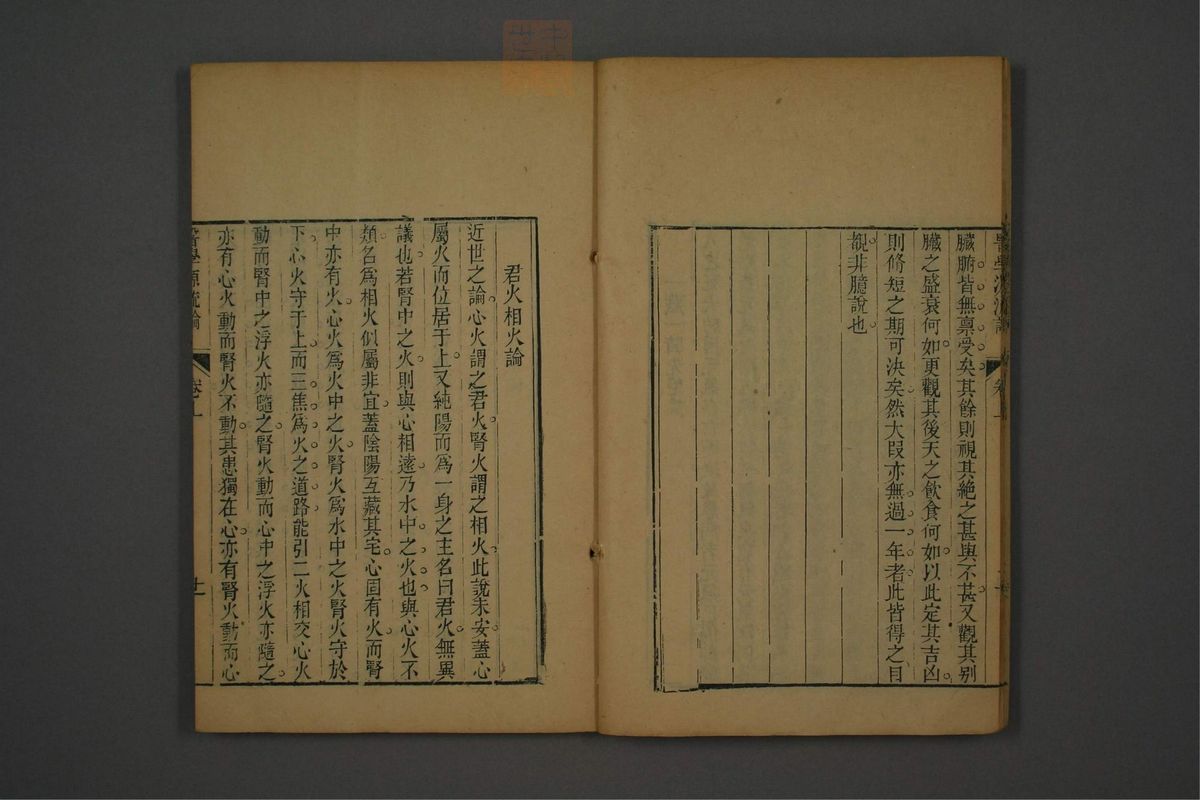 醫學源流論
卷上
臟腑皆無稟受矣其餘則視其絕之甚與不甚又觀其别
臟之盛衰何如更觀其後天之飲食何如以此定其吉凶
則脩短之期可決矣然大段亦無過一年者此皆得之目
覩非臆說也
君火相火論
近世之論心火謂之君火腎火謂之相火此說未安蓋心
屬火而位居于上又純陽而爲一身之主名曰君火無異
議也若腎中之火則與心相遠乃水中之火也與心火不
類名爲相火似屬非宜蓋陰陽互藏其宅心固有火而腎
中亦有火心火爲火中之火腎火爲水中之火腎火守於
下心火守于上而三焦爲火之道路能引二火相交心火
動而腎中之浮火亦隨之腎火動而心中之浮火亦隨之
亦有心火動而腎火不動其患獨在心亦有腎火動而心
醫學源流論
卷上
十一